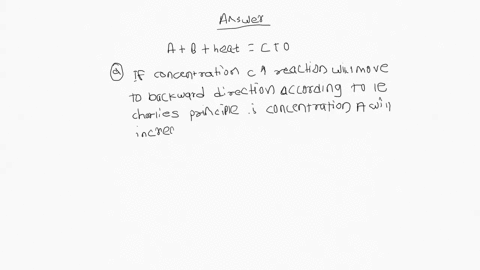 Answer
A + B + heat = C + D
(a) If concentration C ↑ reaction will move
to backward direction according to le
charlies principle. i concentration A will
incre